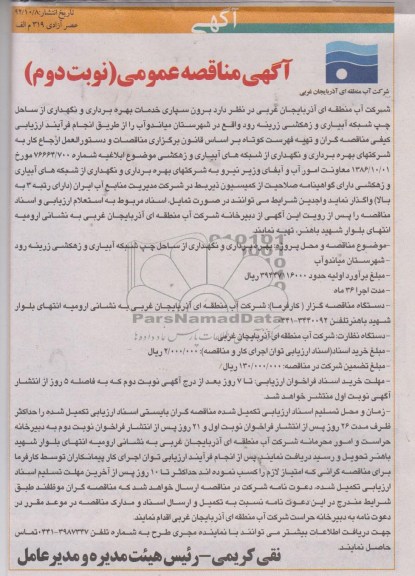 تاریخ انتشار: ۹۲/۱۰/۸
عصر آزادی ۳۱۹ م الف
آگهی
آگهی مناقصه عمومی (نوبت دوم)
شرکت آب منطقه ای آذربایجان غربی
شرکت آب منطقه ای آذربایجان غربی در نظر دارد برون سپاری خدمات بهره برداری و نگهداری از ساحل
چپ شبکه آبیاری و زهکشی زرینه رود واقع در شهرستان میاندوآب را از طریق انجام فرآیند ارزیابی
کیفی مناقصه گران و تهیه فهرست کوتاه بر اساس قانون برگزاری مناقصات و دستورالعمل ارجاع کار به
شرکتهای بهره برداری و نگهداری از شبکه های آبیاری و زهکشی موضوع ابلاغیه شماره ۷۶۶۶۴/۷۰۰ مورخ
۱۳۸۶/۱۰/۰۱ معاونت امور آب و آبفای وزیر نیرو به شرکتهای بهره برداری و نگهداری از شبکه های آبیاری
و زهکشی دارای گواهینامه صلاحیت از کمیسیون ذیربط در شرکت مدیریت منابع آب ایران (دارای رتبه ۳ به
بالا) واگذار نماید واجدین شرایط می توانند در صورت تمایل، اسناد مربوط به استعلام ارزیابی و اسناد
مناقصه را پس از رویت این آگهی از دبیرخانه شرکت آب منطقه ای آذربایجان غربی به نشانی ارومیه
انتهای بلوار شهید باهنر، تهیه نمایند
-موضوع مناقصه و محل پروژه: بهره برداری و نگهداری از ساحل چپ شبکه آبیاری و زهکشی زرینه رود
-شهرستان میاندوآب
-مبلغ برآورد اولیه حدود ریال
-مدت اجرا ۳۶ ماه
-دستگاه مناقصه گزار (کارفرما): شرکت آب منطقه ای آذربایجان غربی به نشانی ارومیه انتهای بلوار
شهید باهنر تلفن
-دستگاه نظارت: شرکت آب منطقه ای آذربایجان غربی
-مبلغ خرید اسناد(اسناد ارزیابی توان اجرای کار و مناقصه): ۲/۰۰۰/۰۰۰ ریال
-مبلغ تضمین شرکت در مناقصه: ۱۳۰/۰۰۰/۰۰۰ ریال
-مهلت خرید اسناد فراخوان ارزیابی: تا ۷ روز بعد از درج آگهی نوبت دوم که به فاصله ۵ روز از انتشار
آگهی نوبت اول منتشر خواهد شد.
-زمان و محل تسلیم اسناد ارزیابی تکمیل شده مناقصه گران بایستی اسناد ارزیابی تکمیل شده را حداکثر
ظرف مدت ۲۶ روز پس از انتشار فراخوان نوبت اول و ۲۱ روز پس از انتشار فراخوان نوبت دوم به دبیرخانه
حراست و امور محرمانه شرکت آب منطقه ای آذربایجان غربی به نشانی ارومیه انتهای بلوار شهید
باهنر تحویل و رسید دریافت نمایند. پس از انجام فرآیند ارزیابی توان اجرای کار پیمانکاران توسط کارفرما
برای مناقصه گرانی که امتیاز لازم را کسب نموده اند حداکثر تا ۱۰ روز پس از آخرین مهلت تسلیم اسناد
ارزیابی تکمیل شده، دعوت نامه شرکت در مناقصه ارسال خواهد شد که مناقصه گران موظفند طبق
شرایط مندرج در این دعوت نامه نسبت به تکمیل و ارسال اسناد و مدارک مناقصه در موعد مقرر در
دعوت نامه به دبیرخانه حراست شرکت آب منطقه ای آذربایجان غربی اقدام نمایند
جهت دریافت اطلاعات بیشتر می توانند با نماینده مجری طرح به شماره تلفن ۳۹۸۷۳۴۷-۰۴۴۱ تماس
حاصل نمایند.
نقی کریمی – رئیس هیئت مدیره و مدیرعامل
ParsNamadData